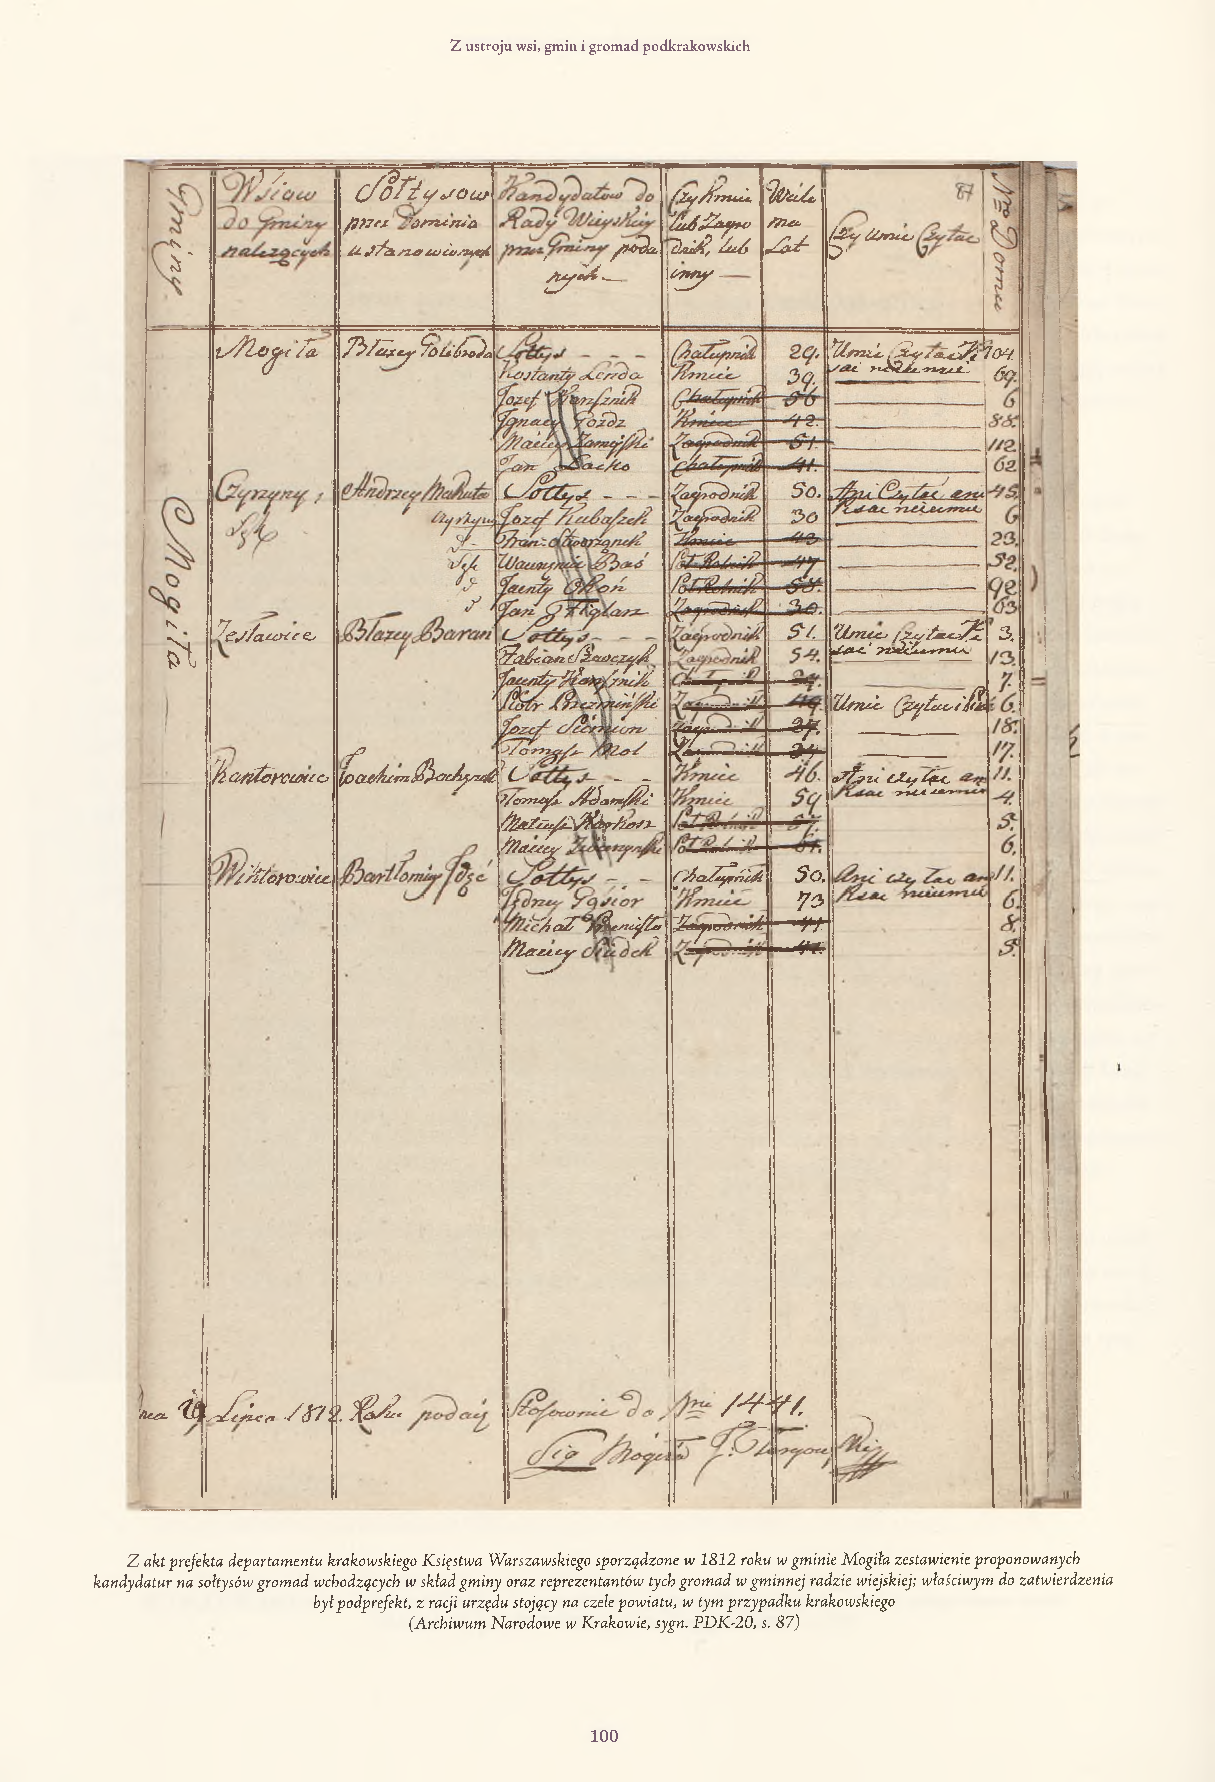 Z ustroju wsi, gmin i gromad podkrakowskich
87
Gminy
Wsiow do Gminy nalezących
Sołtysow przez Dominia ustanowionych
Kandydatow do Rady Wieyskiey przez Gminy podanych
Czy Kmiec lub Zagrodnik, lub inny
Wiele ma Lat
Czy umie Czytac
Nro Domu
Mogiła
Mogiła Błazey Golibroda Sołtys - - - Chałupnik 29. Umie Czytac 104.
Kostanty Lenda Kmiec 39. 69.
Jozef Chałupnik 56 6
Ignacy Gozdz Kmiec 42. 88.
Maciey Zamoyski Zagrodnik 51. 112
Jan Chałupnik 41. 62
Czyzyny, Andrzey Makuta Sołtys - - - Zagrodnik 50. Ani Czytac ani 45.
Łęg Czyzyny Jozef Kubaszek Zagrodnik 30 6
Kmiec 43 23.
Łęg Wawrzyniec Baś Poł Rolnik 47 52.
Jacenty Okoń Poł Rolnik 58. 92
Jan Zagrodnik 30. 63
Zesławice Błazey Baran Sołtys - - - Zagrodnik 51. Umie Czytac 3.
Fabian Szawczyk Zagrodnik 54. 13.
Jacenty 7.
Piotr Zagrodnik 49 Umie Czytac i 6.
Jozef Siemion Zagrodnik 27. 18.
Tomasz Mol Zagrodnik 17.
Kantorowice Joachim Sołtys - - Kmiec 46. Ani czytac ani 11.
Tomasz Adamski Kmiec 59 4.
Mateusz Kokosz Poł Rolnik 57. 5.
Maciey Poł Rolnik 61. 6.
Wiktorowice Bartłomiey Sołtys - - Chałupnik 50. Ani czytac ani 11.
Jędrzey Gąsior Kmiec 73 6.
Michał Zagrodnik 41 8.
Maciey Zagrodnik 44. 5.
Lipca 1812. Roku podaię Stosownie do Nru 1441.
Sig Mogiła
Z akt prefekta departamentu krakowskiego Księstwa Warszawskiego sporządzone w 1812 roku w gminie Mogiła zestawienie proponowanych
kandydatur na sołtysów gromad wchodzących w skład gminy oraz reprezentantów tych gromad w gminnej radzie wiejskiej; właściwym do zatwierdzenia
był podprefekt, z racji urzędu stojący na czele powiatu, w tym przypadku krakowskiego
(Archiwum Narodowe w Krakowie, sygn. PDK-20, s. 87)
100